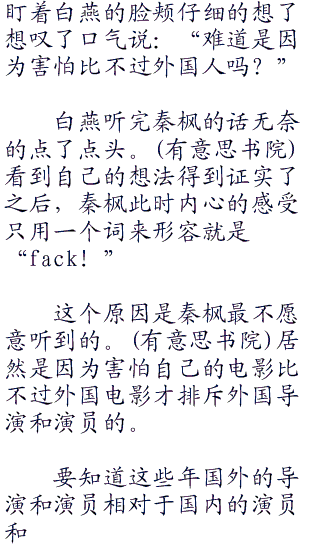 盯着白燕的脸颊仔细的想了
想叹了口气说：“难道是因
为害怕比不过外国人吗？”
白燕听完秦枫的话无奈
的点了点头。(有意思书院)
看到自己的想法得到证实了
之后，秦枫此时内心的感受
只用一个词来形容就是
“fack！”
这个原因是秦枫最不愿
意听到的。(有意思书院)居
然是因为害怕自己的电影比
不过外国电影才排斥外国导
演和演员的。
要知道这些年国外的导
演和演员相对于国内的演员
和